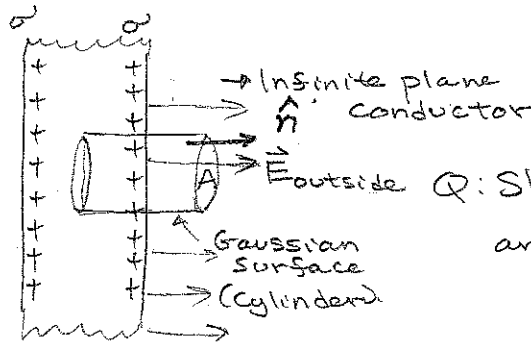 σ σ
→ Infinite plane
conductor
n̂
E⃗outside Q: S
A
an
Gaussian
surface
(cylinder)